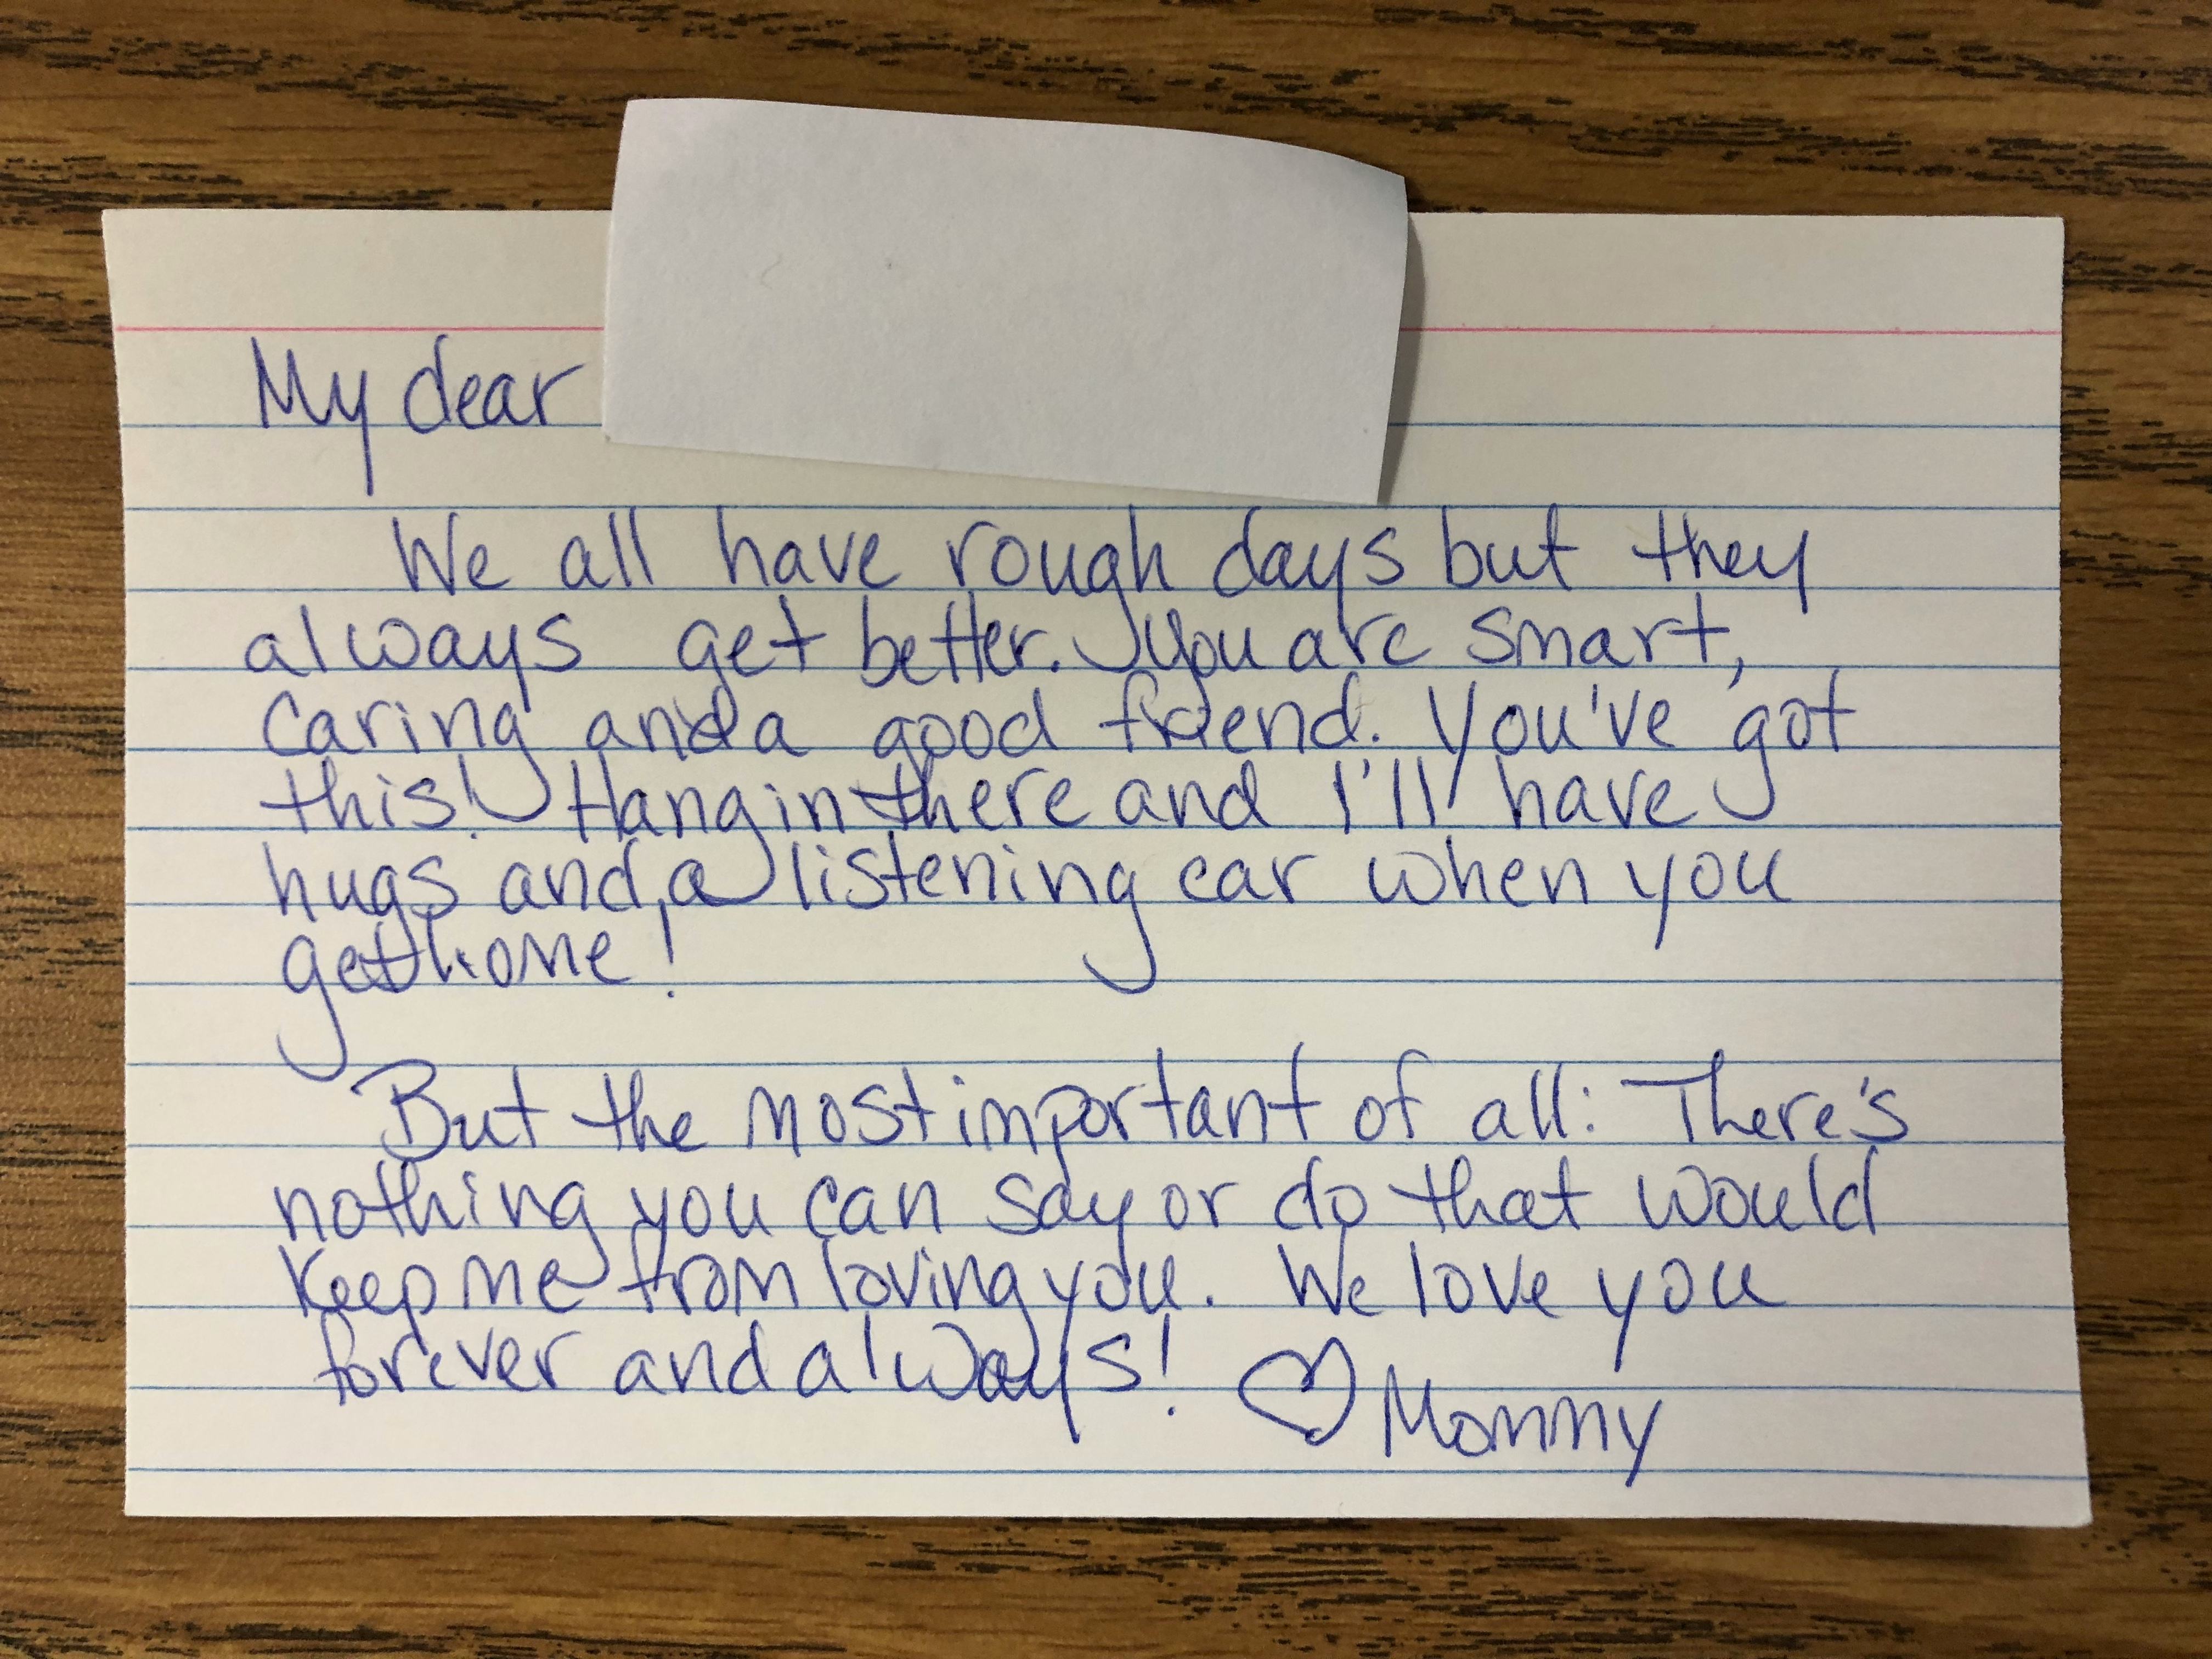 My dear
We all have rough days but they
always get better. You are smart,
caring and a good friend. You've got
this! Hang in there and I'll have
hugs and a listening ear when you
get home!
But the most important of all: There's
nothing you can say or do that would
keep me from loving you. We love you
forever and always! ♡ Mommy